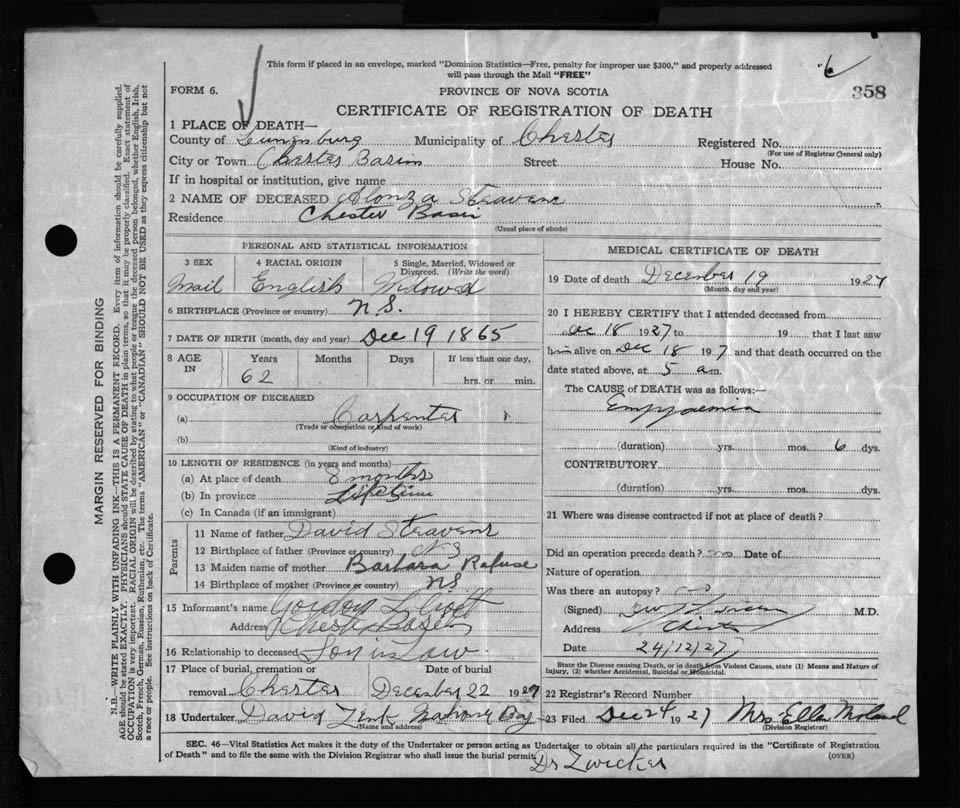 This form if placed in an envelope, marked "Dominion Statistics—Free, penalty for improper use $300," and properly addressed
will pass through the Mail "FREE"
6
FORM 6.
PROVINCE OF NOVA SCOTIA
358
CERTIFICATE OF REGISTRATION OF DEATH
1 PLACE OF DEATH—
County of Lunenburg Municipality of Chester Registered No.
(For use of Registrar General only)
City or Town Chester Basin Street House No.
If in hospital or institution, give name
2 NAME OF DECEASED Alonza Stevens
Residence Chester Basin
(Usual place of abode)
PERSONAL AND STATISTICAL INFORMATION
3 SEX 4 RACIAL ORIGIN 5 Single, Married, Widowed or Divorced. (Write the word)
Mail English Widowed
6 BIRTHPLACE (Province or country) N.S.
7 DATE OF BIRTH (month, day and year) Dec 19 1865
8 AGE IN Years Months Days If less than one day,
62 hrs. or min.
9 OCCUPATION OF DECEASED
(a) Carpenter
(Trade or occupation or kind of work)
(b)
(Kind of industry)
10 LENGTH OF RESIDENCE (in years and months)
(a) At place of death 8 months
(b) In province Lifetime
(c) In Canada (if an immigrant)
Parents
11 Name of father David Stevens
12 Birthplace of father (Province or country) N S
13 Maiden name of mother Barbara Rafuse
14 Birthplace of mother (Province or country) N.S.
15 Informant's name Gordon L Croft
Address Chester Basin
16 Relationship to deceased Son in Law
17 Place of burial, cremation or Date of burial
removal Chester December 22 1927
18 Undertaker David Zink Mahone Bay
(Name and address)
MEDICAL CERTIFICATE OF DEATH
19 Date of death December 19 1927
(Month, day and year)
20 I HEREBY CERTIFY that I attended deceased from
Dec 18 1927 to 19 that I last saw
him alive on Dec 18 1927 and that death occurred on the
date stated above, at 5 a m.
The CAUSE of DEATH was as follows:—
Empyaemia
(duration) yrs. mos. 6 dys.
CONTRIBUTORY
(duration) yrs. mos. dys.
21 Where was disease contracted if not at place of death?
Did an operation precede death? no Date of
Nature of operation
Was there an autopsy? no
(Signed) M.D.
Address Chester
Date 24/12/27
State the Disease causing Death, or in death from Violent Causes, state (1) Means and Nature of Injury, (2) whether Accidental, Suicidal or Homicidal.
22 Registrar's Record Number
23 Filed Dec 24 1927 Mrs Ellen Noland
(Division Registrar)
SEC. 46—Vital Statistics Act makes it the duty of the Undertaker or person acting as Undertaker to obtain all the particulars required in the "Certificate of Registration
of Death" and to file the same with the Division Registrar who shall issue the burial permit. (OVER)
Dr Zwicker
MARGIN RESERVED FOR BINDING
N.B.—WRITE PLAINLY WITH UNFADING INK—THIS IS A PERMANENT RECORD. Every item of information should be carefully supplied.
AGE should be stated EXACTLY. PHYSICIANS should STATE CAUSE OF DEATH in plain terms, so that it may be properly classified. Exact statement of
OCCUPATION is very important. RACIAL ORIGIN will be described by stating to what people or tongue the deceased person belonged, whether English, Irish,
Scotch, French, German, Russian, Ruthenian, etc. The terms "AMERICAN" or "CANADIAN" SHOULD NOT BE USED as they express citizenship but not
a race or people. See instructions on back of Certificate.